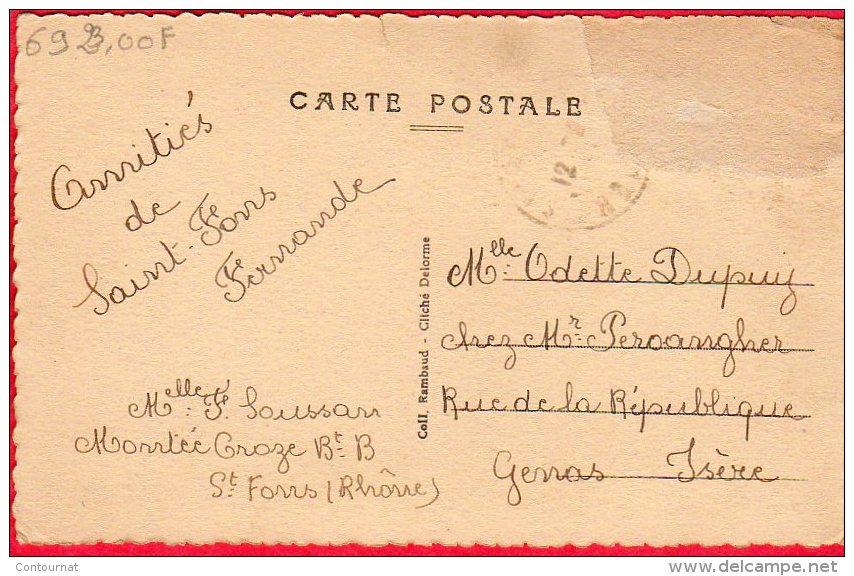 69 3,00F
CARTE POSTALE
Amitiés
de
Saint-Fons
Fernande
Mlle F. Soussan
Montée Croze Bt B
St Fons (Rhône)
Coll. Rambaud - Cliché Delorme
12
Mlle Odette Dupuiz
chez Mr Peroangher
Rue de la République
Genas Isère
Contournat
www.delcampe.net